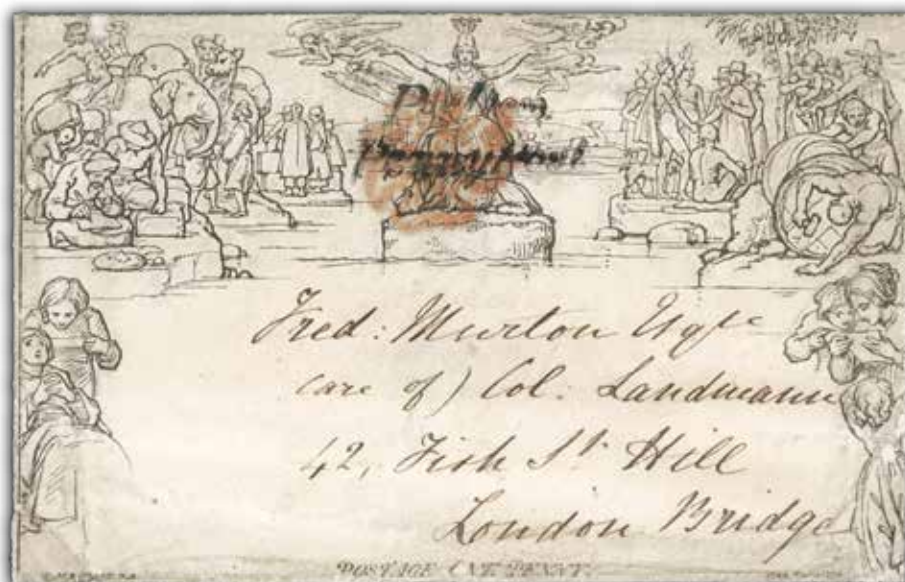 Penny Post
Fred: Murton Esqre
care of) Col: Landmann
42, Fish St Hill
London Bridge
POSTAGE ONE PENNY.